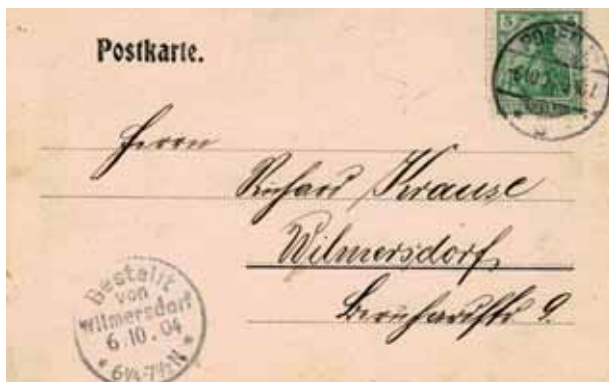 Postkarte.
5 5
POSEN
Herrn
Richard Krause
Wilmersdorf,
Bernhardstr 9.
Bestellt
von
Wilmersdorf
6.10.04
* 6¼-7½N *